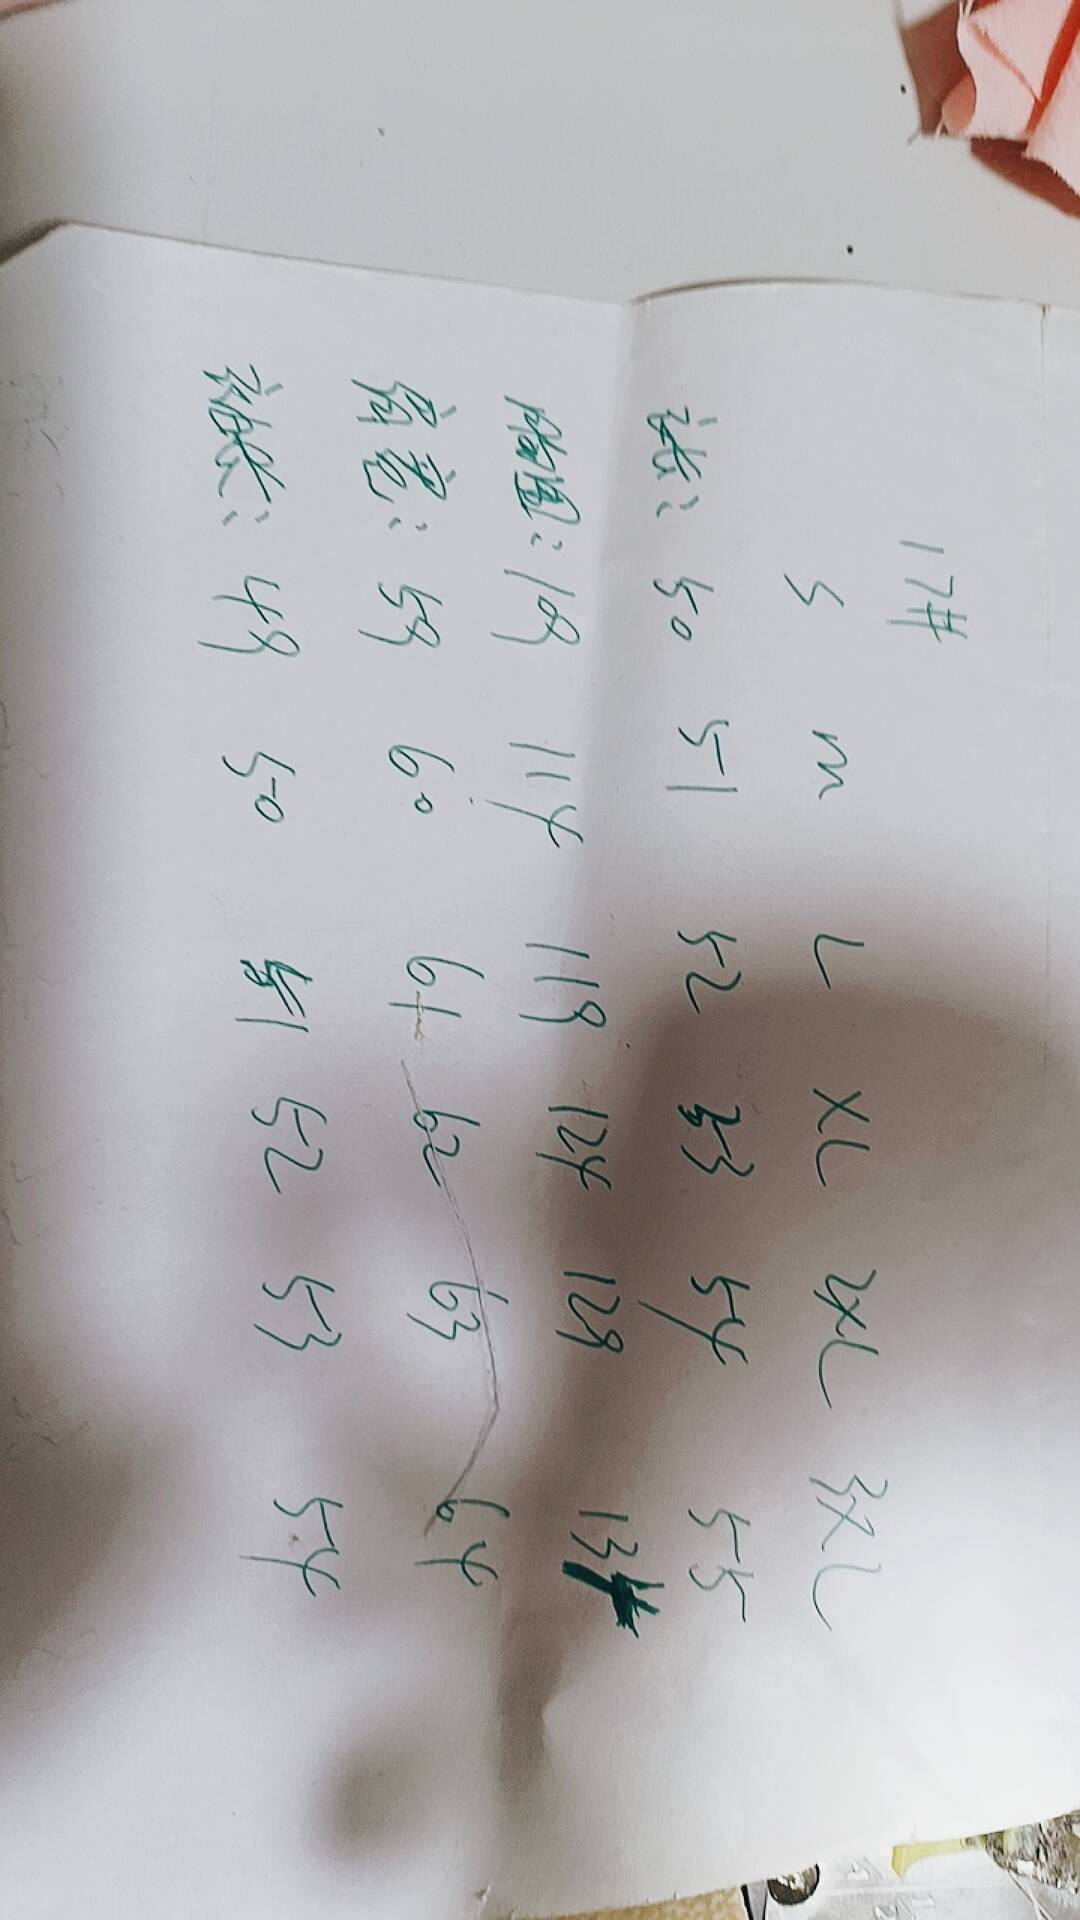 17#
S M L XL 2XL 3XL
衣长: 50 51 52 53 54 55
胸围: 109 114 119 124 129 134
肩宽: 59 60 61 62 63 64
袖长: 49 50 51 52 53 54